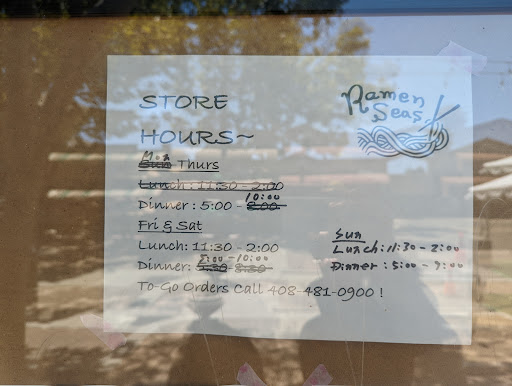 Ramen
Seas
STORE
HOURS~
Mon
Sun Thurs
Lunch: 11:30 - 2:00
10:00
Dinner: 5:00 - 8:00
Fri & Sat
Lunch: 11:30 - 2:00
5:00 - 10:00
Dinner: 5:30 - 8:30
Sun
Lunch: 11:30 - 2:00
Dinner: 5:00 - 9:00
To-Go Orders Call 408-481-0900 !